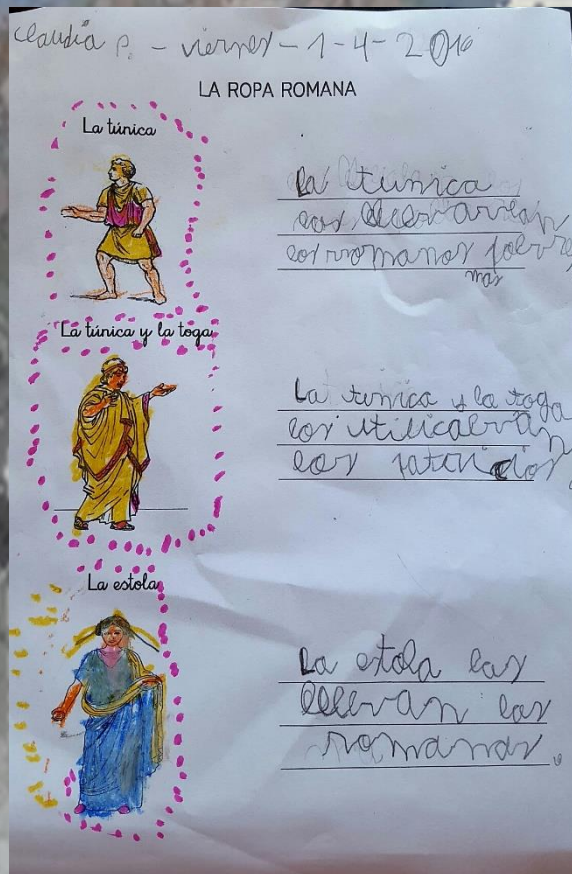 Claudia P. - viernes - 1-4-2016
LA ROPA ROMANA
La túnica
La tunica
los llevavan
los rromanos pobres
mas
La túnica y la toga
La tunica y la toga
los utilicavan
los patricios
La estola
La estola las
llevan las
romanas.